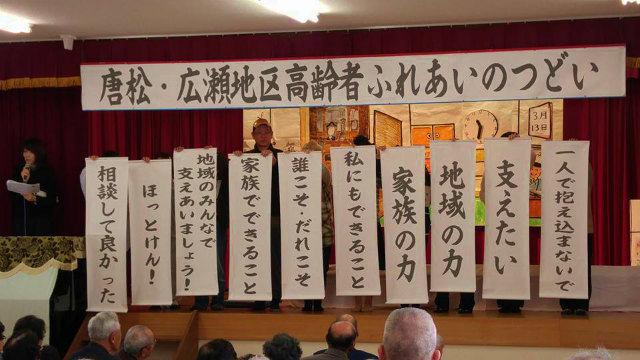 唐松・広瀬地区高齢者ふれあいのつどい
一人で抱え込まないで
支えたい
地域の力
家族の力
私にもできること
誰こそ・だれこそ
家族でできること
地域のみんなで
支えあいましょう!
ほっとけん!
相談して良かった
3月
13日